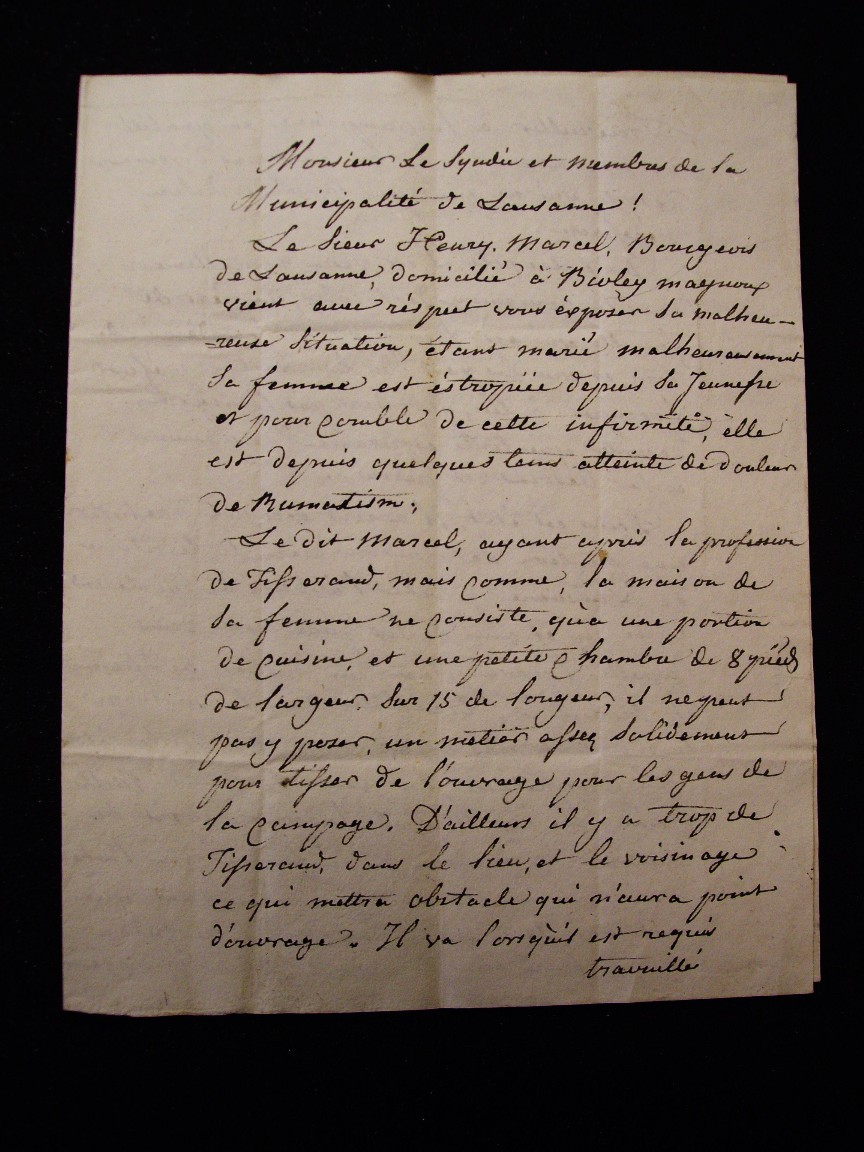 Monsieur Le Syndic et membres de la
Municipalité de Lausanne !
Le Sieur Henry Marcel, Bourgeois
de Lausanne, domicilié à Bioley magnoux
vient avec réspect vous éxposer sa malheu-
-reuse situation, étant marié malheureusement
sa femme est éstropiée depuis sa Jeunesse
et pour comble de cette infirmité, elle
est depuis quelques tems atteinte de douleur
de Rumatism.
Le dit Marcel, ayant apris la profession
de Tisserand, mais comme, la maison de
sa femme ne consiste, qu'a une portion
de cuisine, et une petite Chambre de 8 pieds
de largeur, Sur 15 de longeur, il ne peut
pas y poser, un metier assez solidement
pour tisser de l'ouvrage pour les gens de
la campage. D'ailleurs il y a trop de
Tisserand, dans le lieu, et le voisinage
ce qui mettra obstacle qui n'aura point
d'ouvrage. Il va lorsqu'il est requis
travaillé